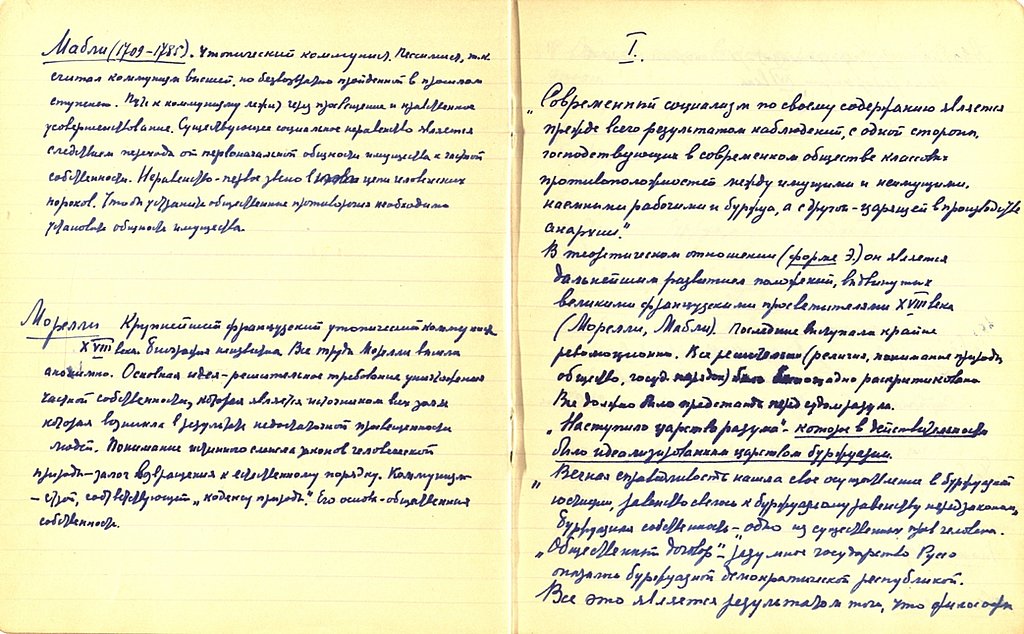 Мабли (1709-1785). Утопический коммунист. Пессимист, т.к.
считал коммунизм высшей, но безвозвратно пройденной в прошлом
ступенью. Путь к коммунизму лежит через просвещение и нравственное
усовершенствование. Существующее социальное неравенство является
следствием перехода от первоначальной общности имущества к частной
собственности. Неравенство - первое звено в цепи человеческих
пороков. Чтобы устранить общественные противоречия необходимо
установить общность имущества.
Морелли Крупнейший французский утопический коммунист
XVIII века. Биография неизвестна. Все труды Морелли вышли
анонимно. Основная идея - решительное требование уничтожения
частной собственности, которая является источником всех зол и
которая возникла в результате недостаточной просвещенности
людей. Понимание истинного смысла законов человеческой
природы - залог возвращения к естественному порядку. Коммунизм -
- строй, соответствующий „кодексу природы". Его основа - общественная
собственность.
I.
„Современный социализм по своему содержанию является
прежде всего результатом наблюдений, с одной стороны,
господствующих в современном обществе классовых
противоположностей между имущими и неимущими,
наемными рабочими и буржуа, а с другой - царящей в производстве
анархии."
В теоретическом отношении (форме Э.) он является
дальнейшим развитием положений, выдвинутых
великими французскими просветителями XVIII века
(Морелли, Мабли). Последние выступали крайне
революционно. Все решительно (религия, понимание природы,
общество, госуд. порядок) было беспощадно раскритиковано
Все должно было предстать перед судом разума.
„Наступило царство разума" - которое в действительности
было идеализированным царством буржуазии.
„Вечная справедливость нашла свое осуществление в буржуазной
юстиции, равенство свелось к буржуазному равенству перед законом,
буржуазная собственность - одно из существенных прав человека.
„Общественный договор" - разумное государство Руссо
оказалось буржуазной демократической республикой.
Все это является результатом того, что философы